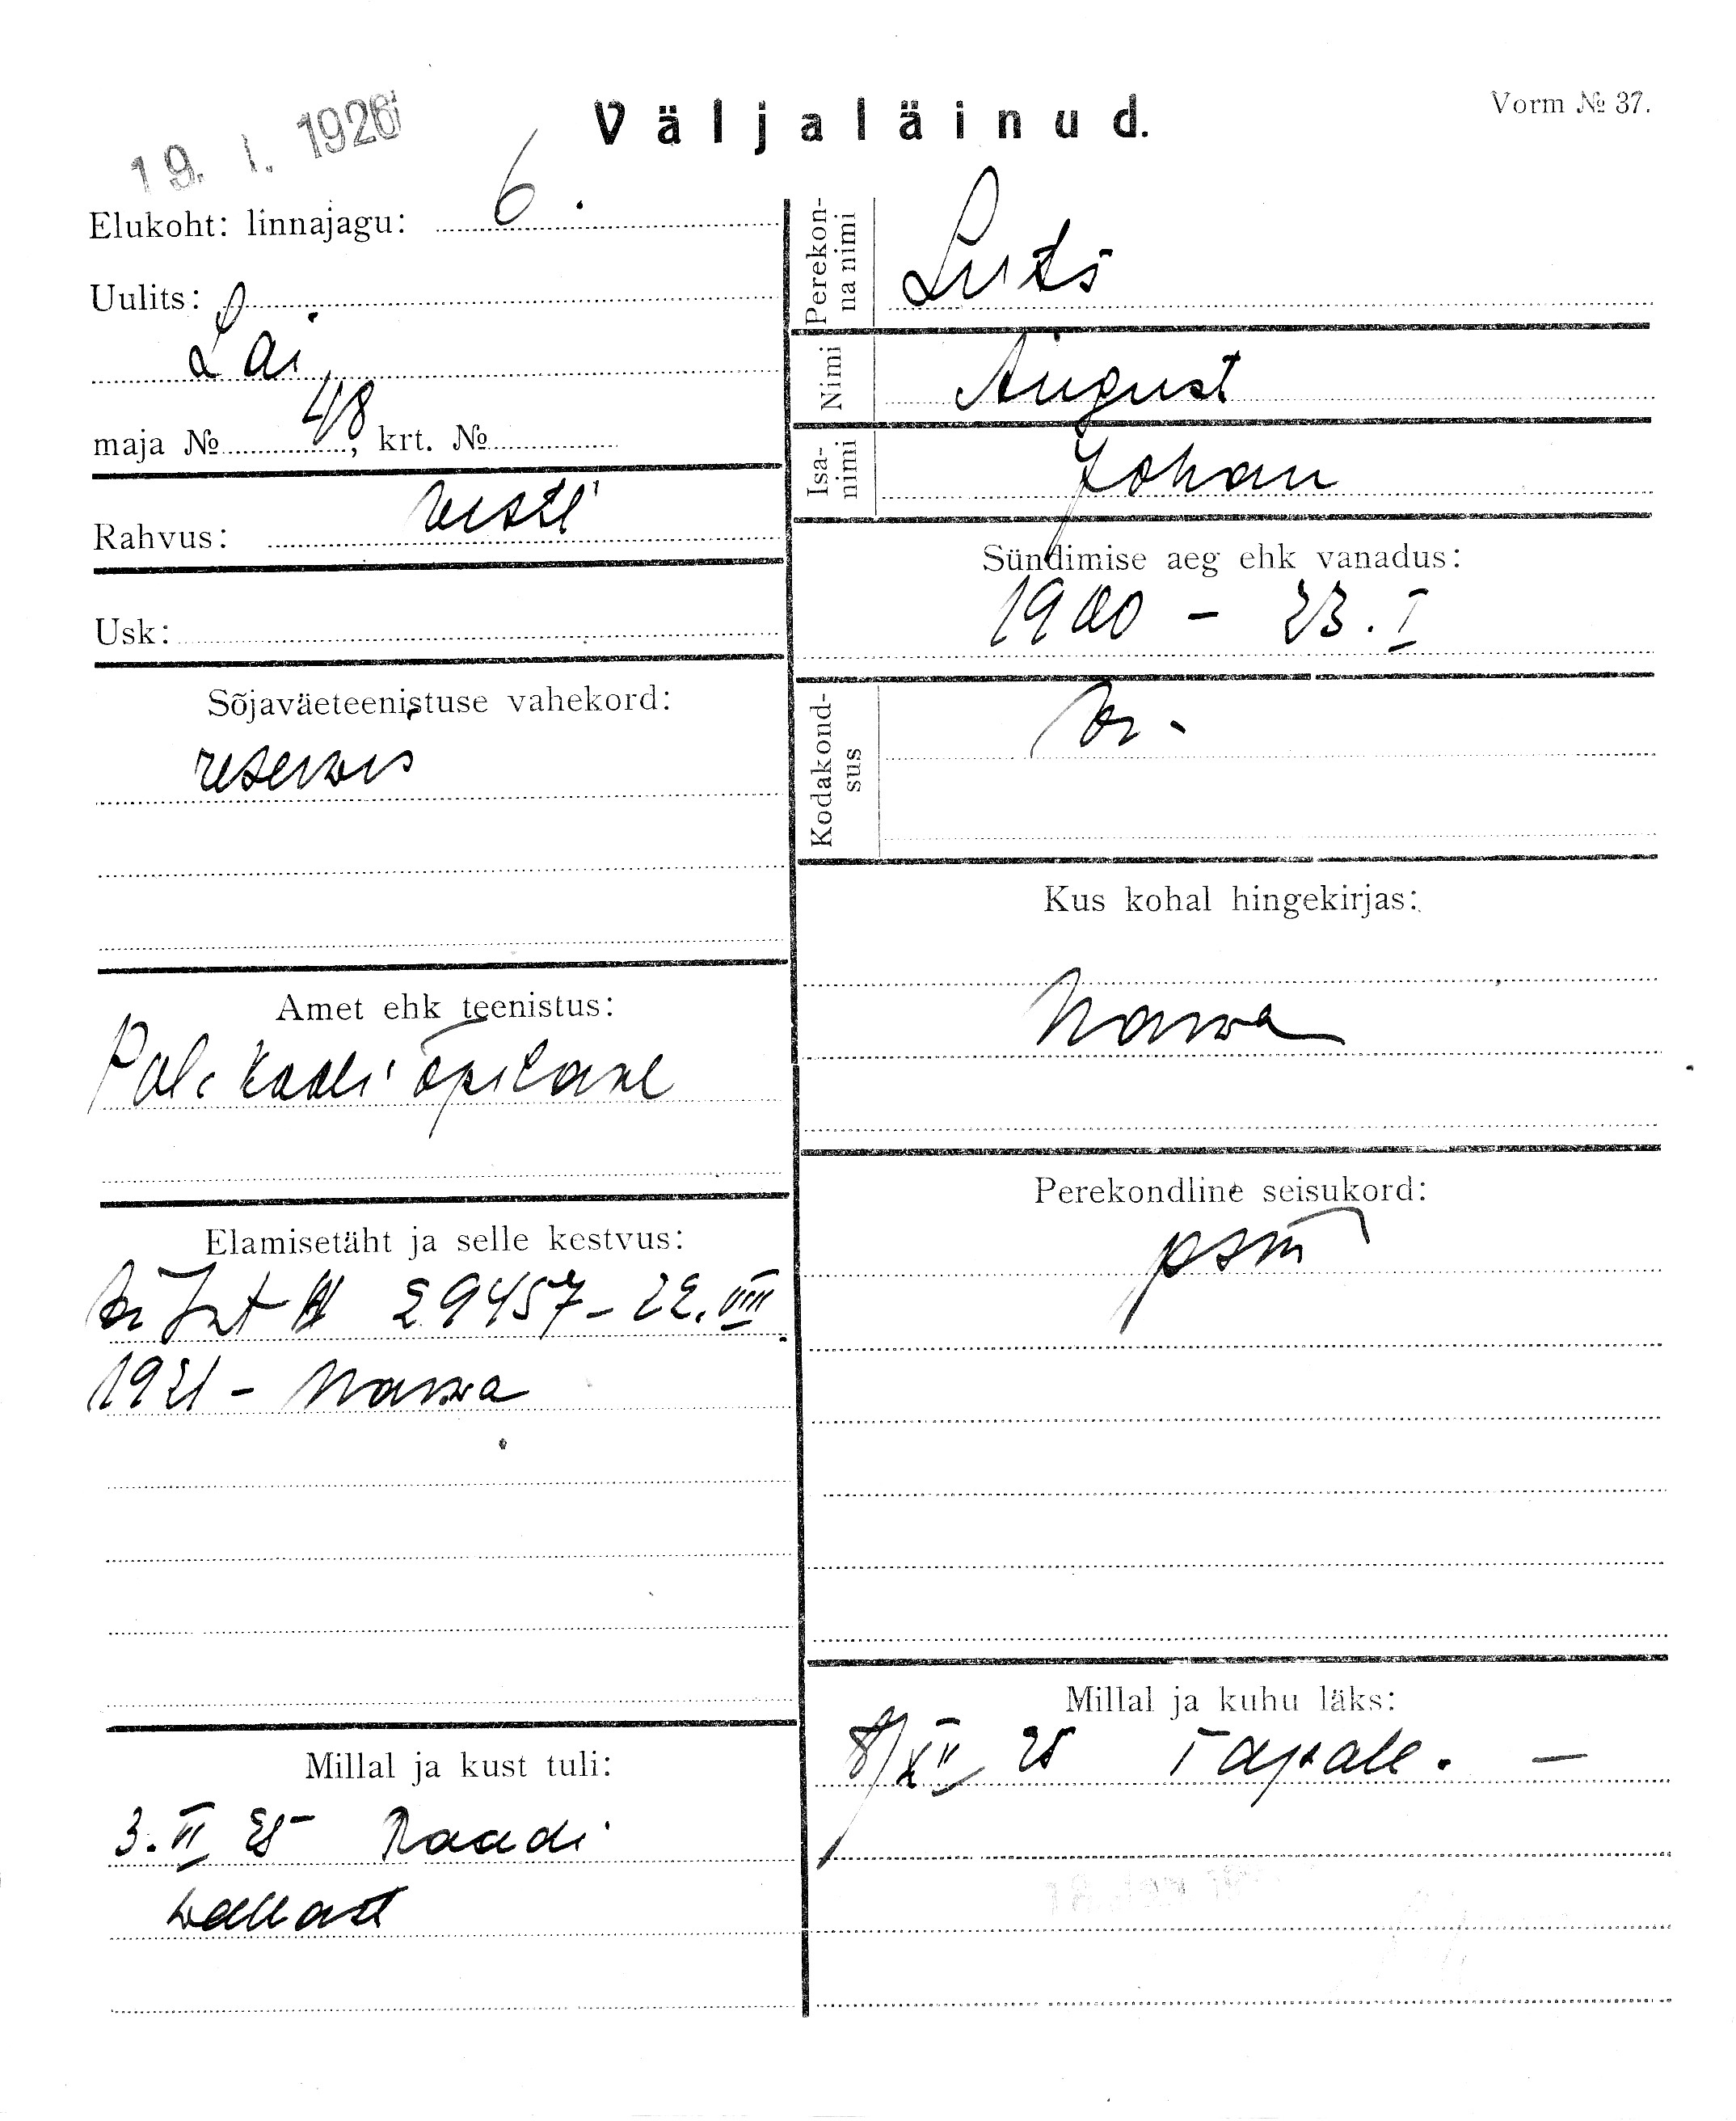 19. I. 1926
Väljaläinud.
Vorm № 37.
Elukoht: linnajagu: 6.
Uulits:
Lai
maja № 48, krt. №
Rahvus: eesti
Usk:
Sõjaväeteenistuse vahekord:
reservis
Amet ehk teenistus:
Pol. kooli õpilane
Elamisetäht ja selle kestvus:
29457 - 22. VIII
1921 - Narva
Millal ja kust tuli:
3. II 25 Raadi
vallast
Perekonna nimi
Luts
Nimi
August
Isanimi
Johan
Sündimise aeg ehk vanadus:
1900 - 23. I
Kodakondsus
Kus kohal hingekirjas:
Narva
Perekondline seisukord:
Millal ja kuhu läks:
8/XII 25 Tapale. —